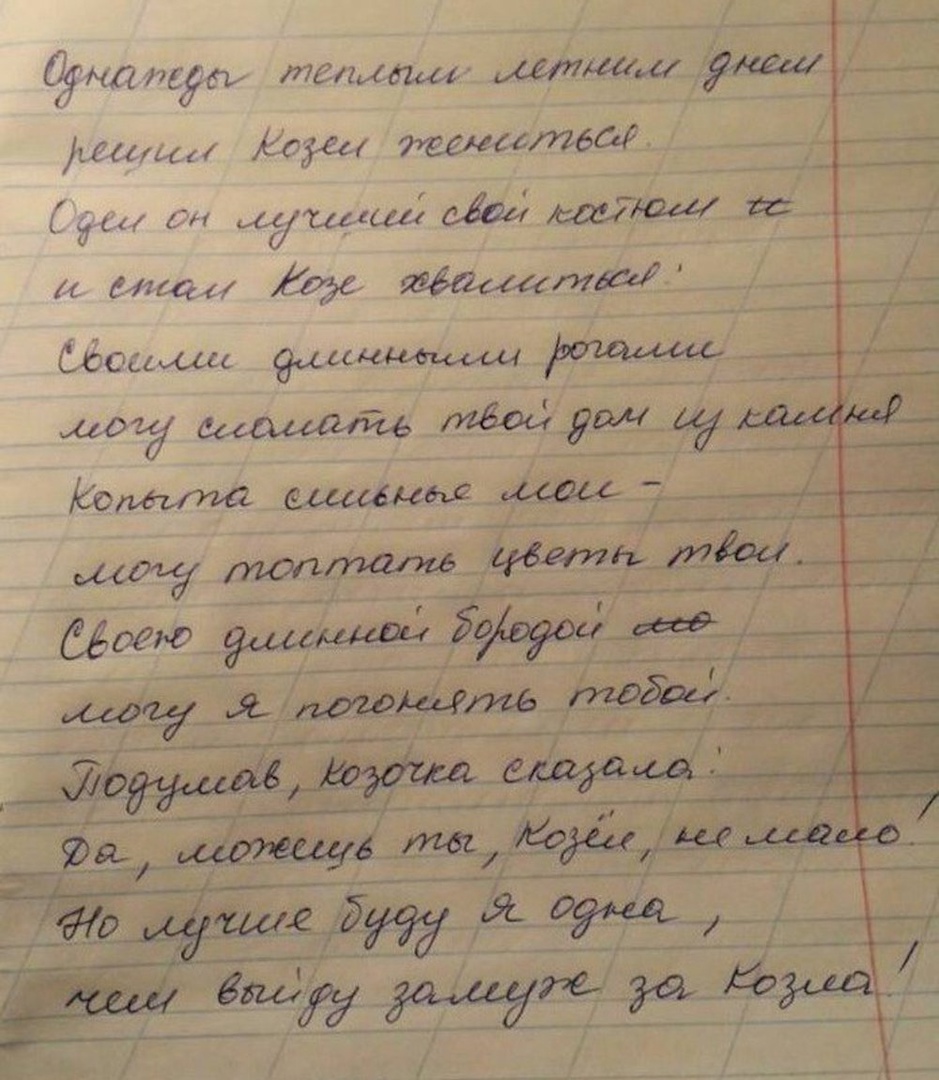 Однажды теплым летним днем
решил Козел жениться.
Одел он лучший свой костюм и
и стал Козе хвалиться:
Своими длинными рогами
могу сломать твой дом из камня
Копыта сильные мои -
могу топтать цветы твои.
Своею длинной бородой мо
могу я погонять тобой.
Подумав, козочка сказала:
Да, можешь ты, Козёл, не мало!
Но лучше буду я одна,
чем выйду замуж за Козла!